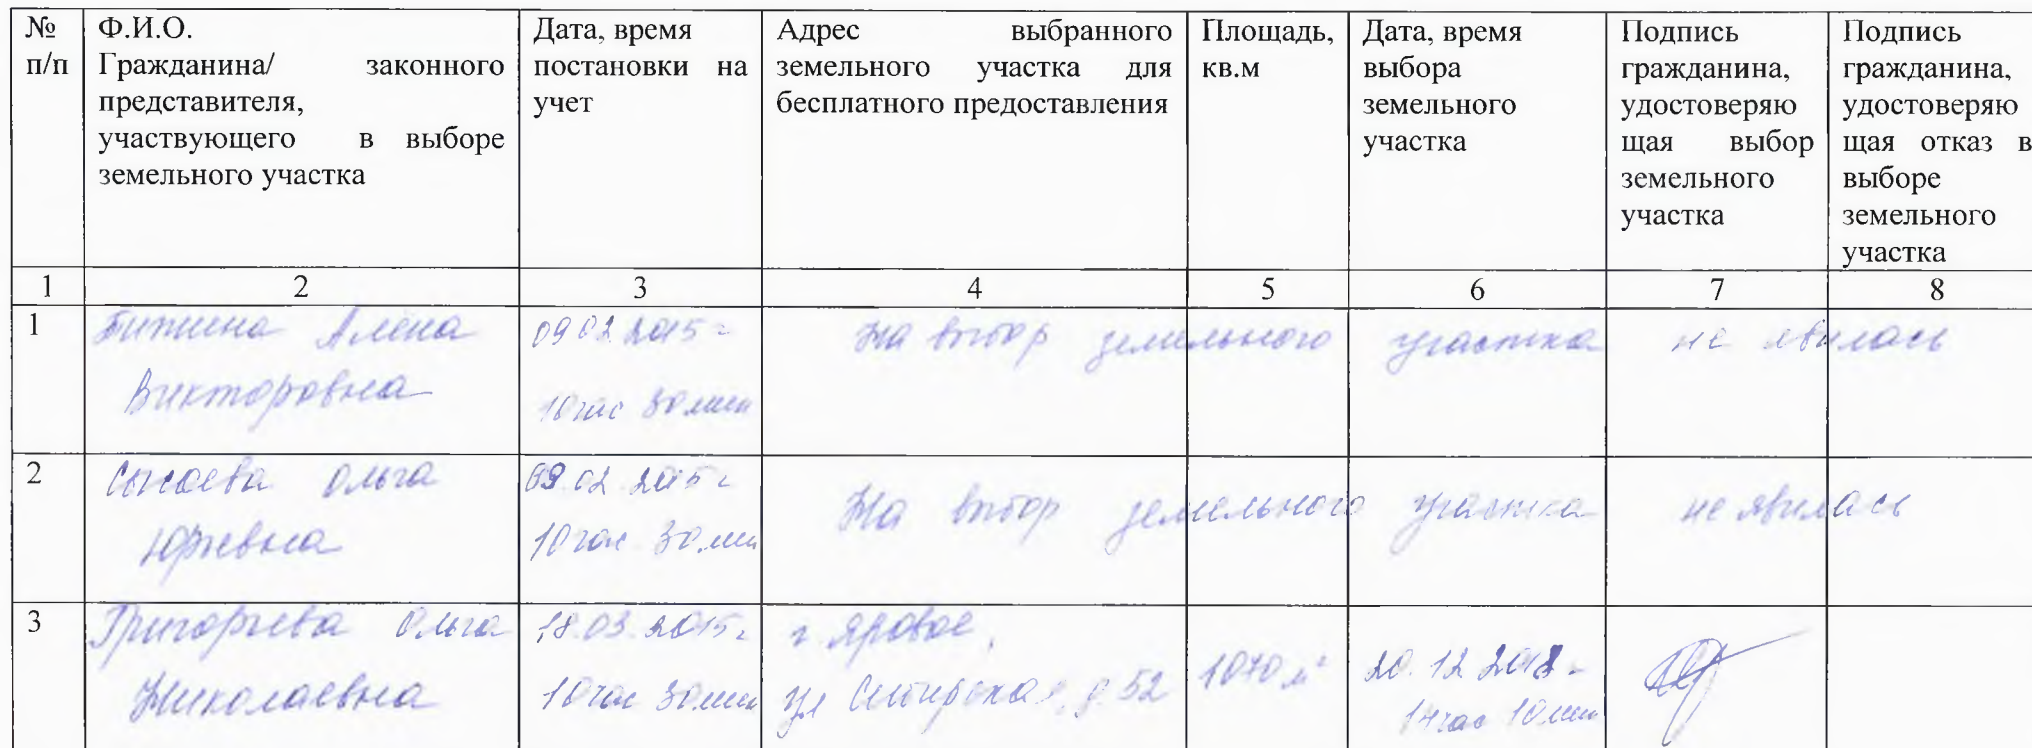 № п/п
Ф.И.О.
Гражданина/ законного
представителя,
участвующего в выборе
земельного участка
Дата, время
постановки на
учет
Адрес выбранного
земельного участка для
бесплатного предоставления
Площадь,
кв.м
Дата, время
выбора
земельного
участка
Подпись
гражданина,
удостоверяю
щая выбор
земельного
участка
Подпись
гражданина,
удостоверяю
щая отказ в
выборе
земельного
участка
1 2 3 4 5 6 7 8
1
Алена
Викторовна
09.02.2015 г
10 час 30 мин
На выбор земельного участка не явилась
2
Сысоева Ольга
Юрьевна
09.02.2015 г
10 час 30 мин
На выбор земельного участка не явилась
3
Григорьева Ольга
Николаевна
18.03.2015 г
10 час 30 мин
г Яровое,
ул Сибирская, д. 52
1070 м²
20.12.2018 г
14 час 10 мин